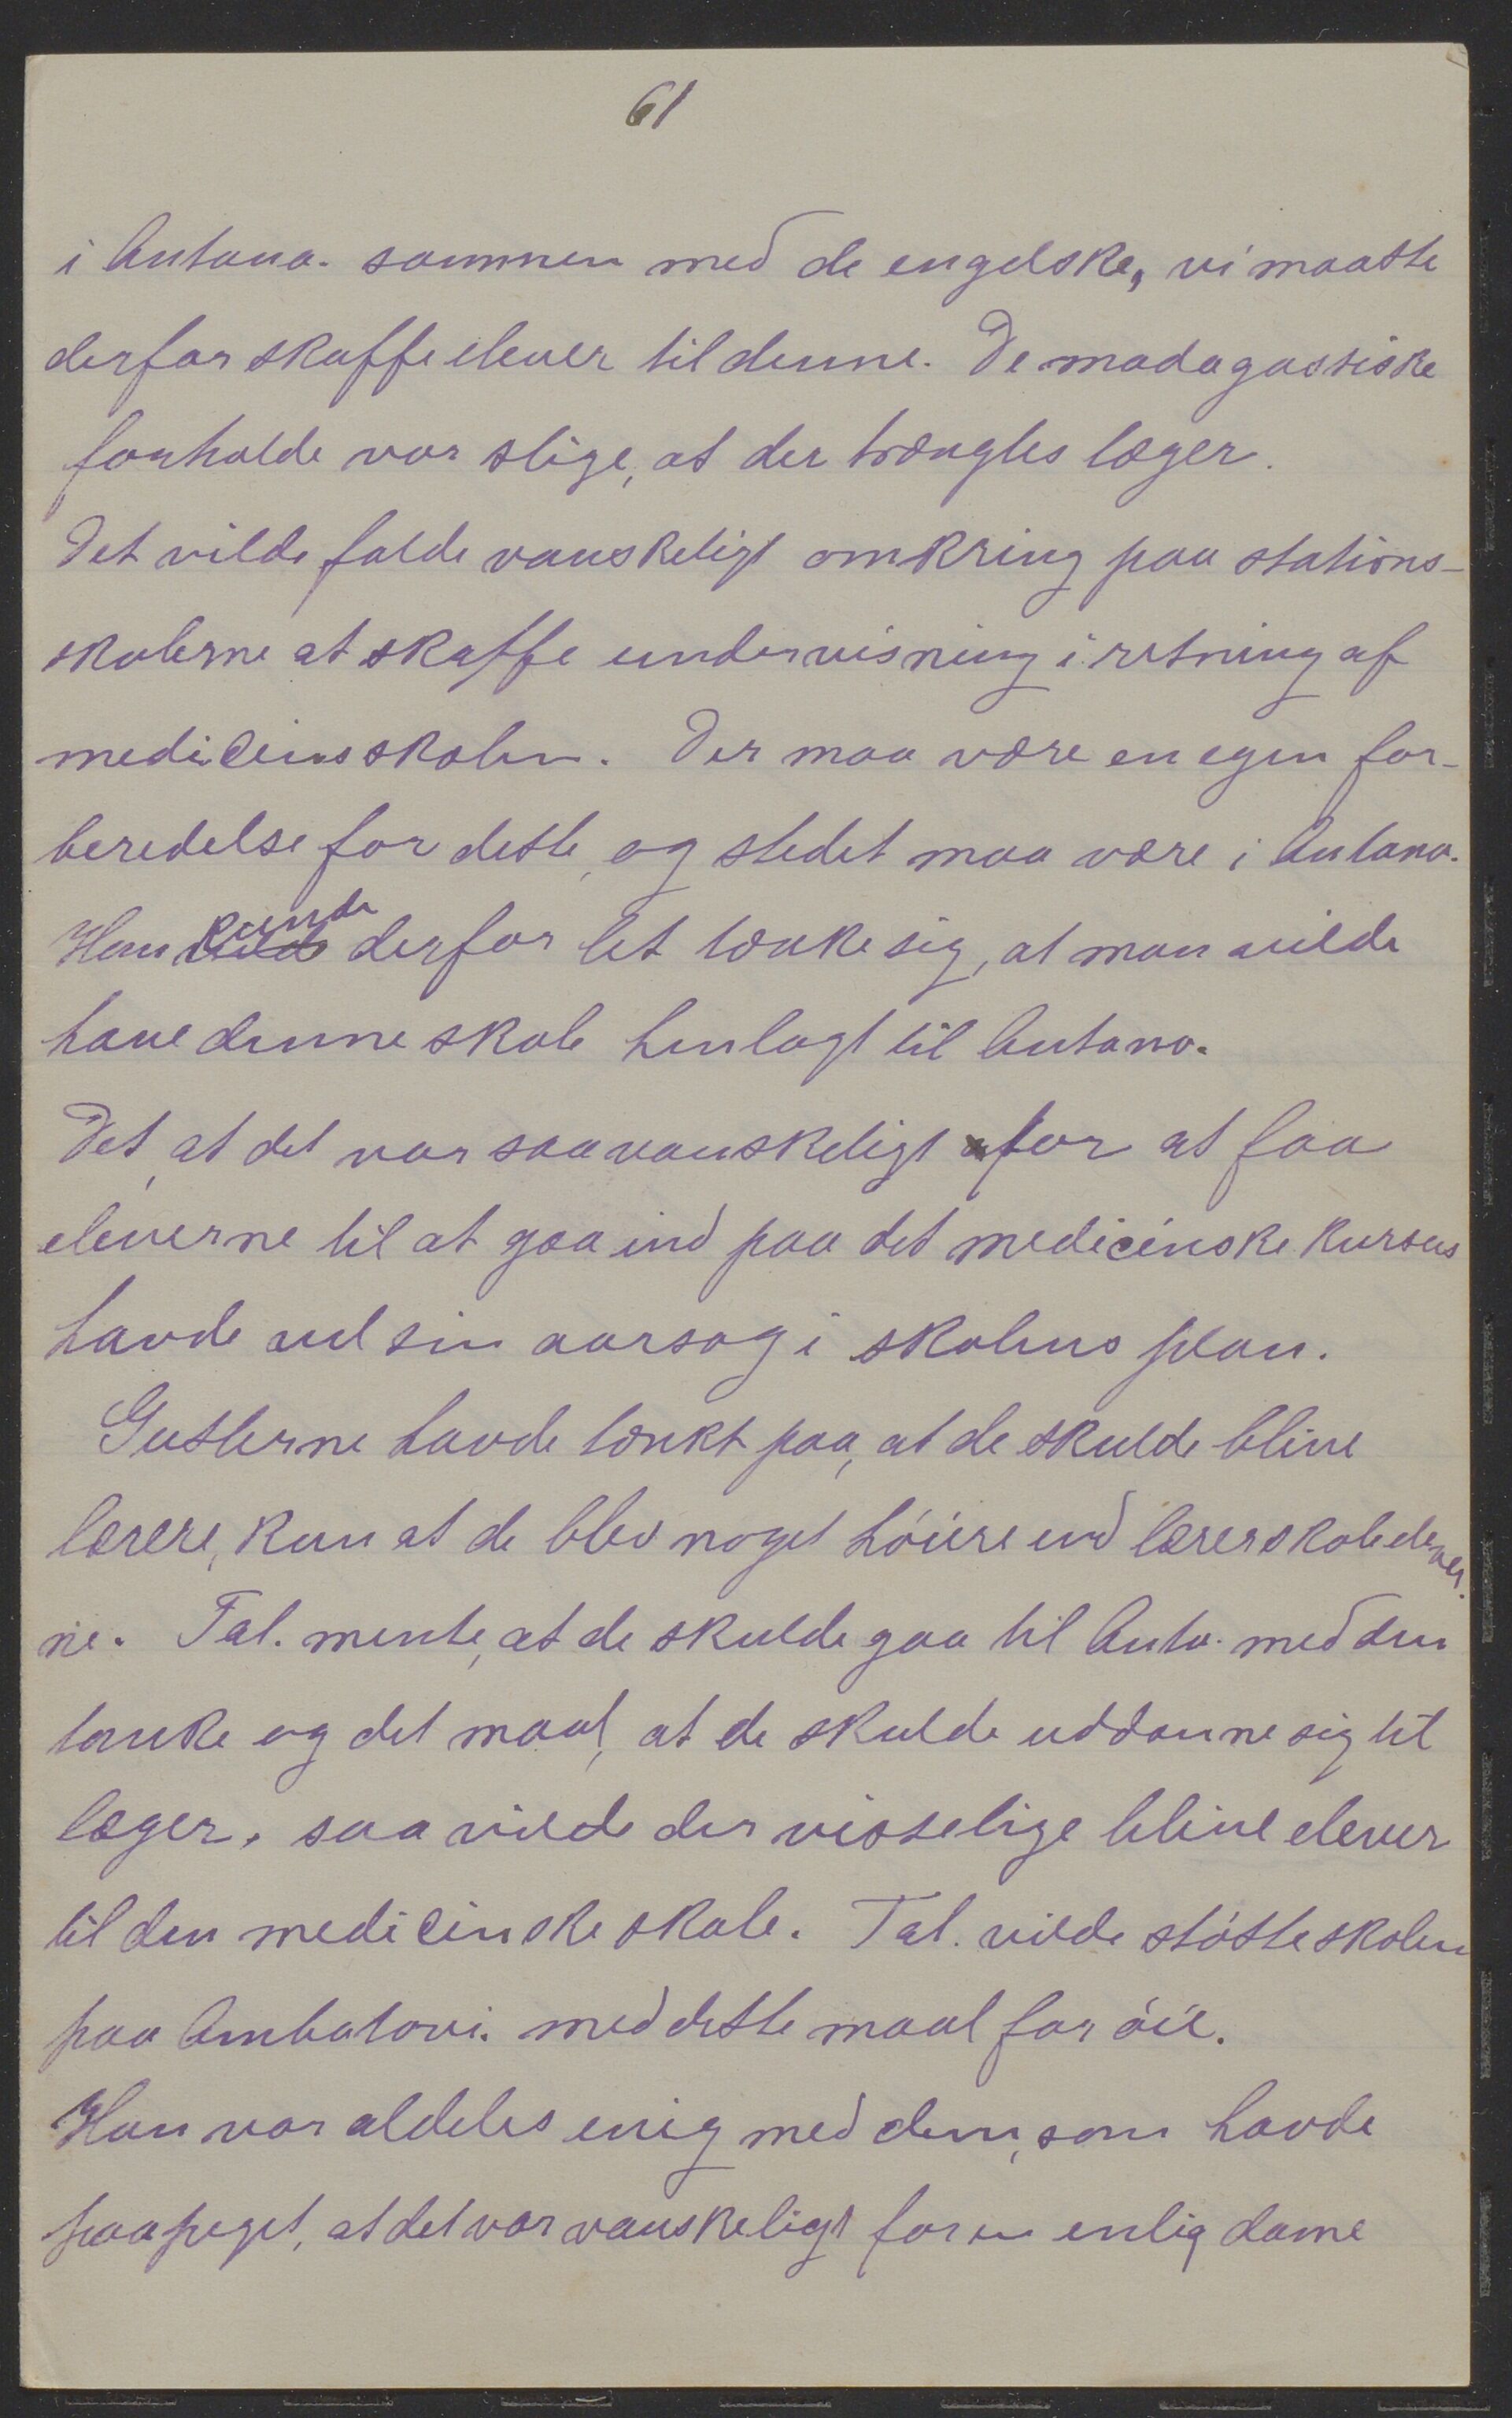 61
i Antana. sammen med de engelske, vi maatte
derfor skaffe elever til denne. De madagassiske
forholde var slige, at der trængtes læger.
Det vilde falde vanskeligt omkring paa stations-
skolerne at skaffe undervisning i retning af
medicinsskolen. Der maa være en egen for-
beredelse for dette, og stedet maa være i Antana.
Han kunde derfor let tænke sig, at man vilde
have denne skole henlagt til Antana.
Det, at det var saa vanskeligt for at faa
eleverne til at gaa ind paa det medicinske kursus
havde vel sin aarsag i skolens plan.
Gutterne havde tænkt paa, at de skulde blive
lærere, kun at de blev noget høiere end lærerskoleelever.
ne. Tal. mente, at de skulde gaa til Anta. med den
tanke og det maal, at de skulde uddanne sig til
læger, saa vilde der visselige blive elever
til den medicinske skole. Tal. vilde støtte skolen
paa Ambatovi. med dette maal for øie.
Han var aldeles enig med dem, som havde
paapeget, at det var vanskeligt for en enlig dame